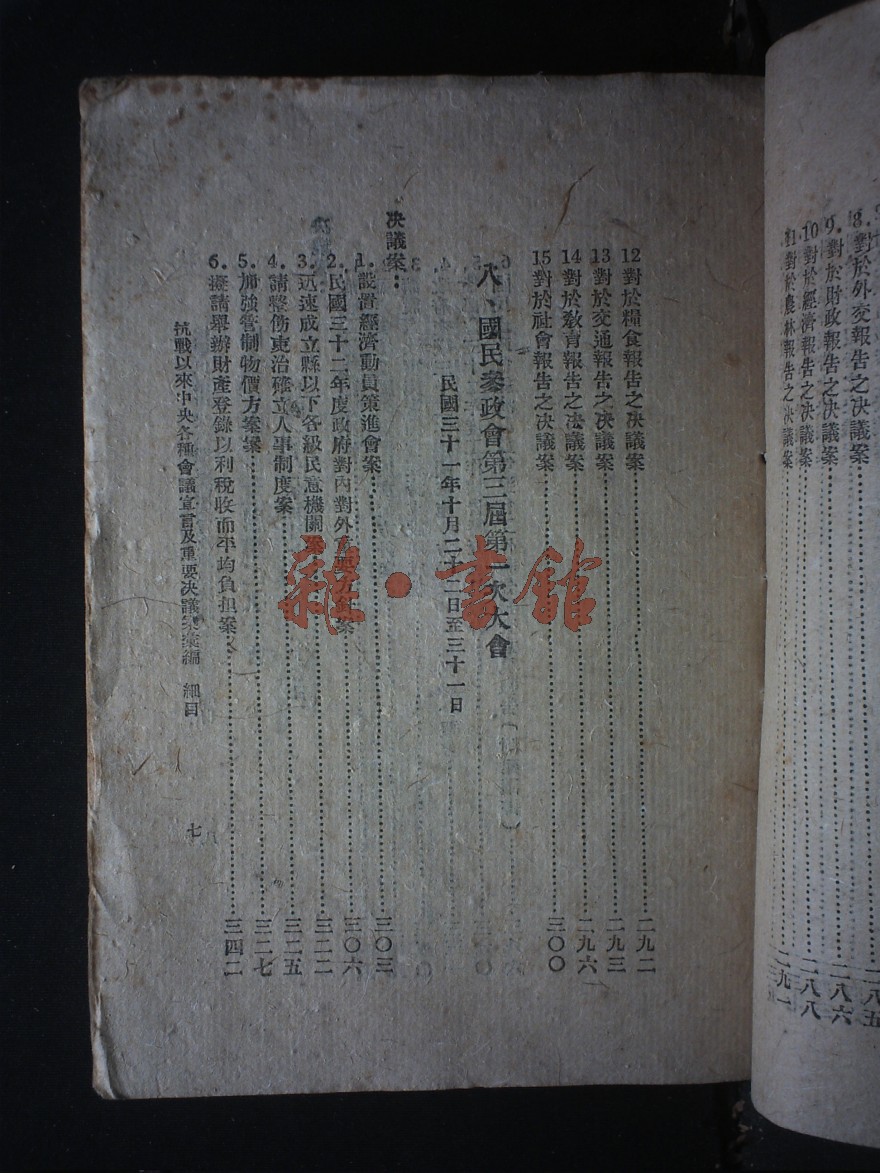 8. 對於外交報告之決議案……二八五
9. 對於財政報告之決議案……二八六
10 對於經濟報告之決議案……二八八
11 對於農林報告之決議案……二九一
12 對於糧食報告之決議案……二九二
13 對於交通報告之決議案……二九三
14 對於教育報告之決議案……二九六
15 對於社會報告之決議案……三〇〇
八、國民參政會第三屆第一次大會
民國三十一年十月二十二日至三十一日
决議案：
1. 設置經濟動員策進會案……三〇三
2. 民國三十二年度政府對內對外重要方針案……三〇六
3. 迅速成立縣以下各級民意機關案……三二二
4. 請整飭吏治確立人事制度案……三二五
5. 加強管制物價方案案……三二七
6. 擬請舉辦財產登錄以利稅收而平均負担案……三四二
抗戰以來中央各種會議宣言及重要决議案彙編 細目
七
雜·書館